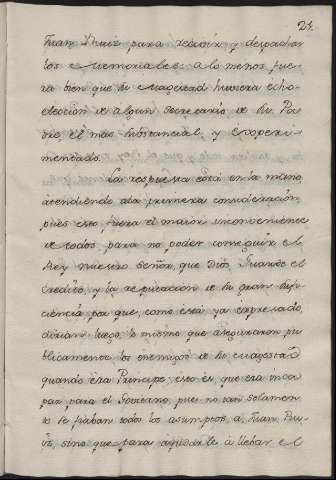 24.
Juan Ruiz para recivir y despachar
los Memoriales: a lo menos fue
ra bien que su Magestad huviera echo
eleccion de algun Secretario de su Pa
dre el mas substancial, y experi
mentado.
La respuesta está en la mano,
atendiendo a la primera consideracion,
pues esto fuera el maior inconveniente
de todos para no poder conseguir el
Rey nuestro Señor, que Dios guarde el
credito, y la reputacion de su gran sufi
ciencia por que como está ya expresado,
dirian luego lo mismo que aseguraron pu
blicamente los enemigos de su Magestad
quando era Principe, esto es, que era inca
paz para el Govierno, pues no tan solamen
te se fiaban todos los asumptos, a Juan Ru
iz, sino que para ayudarle à llebar el